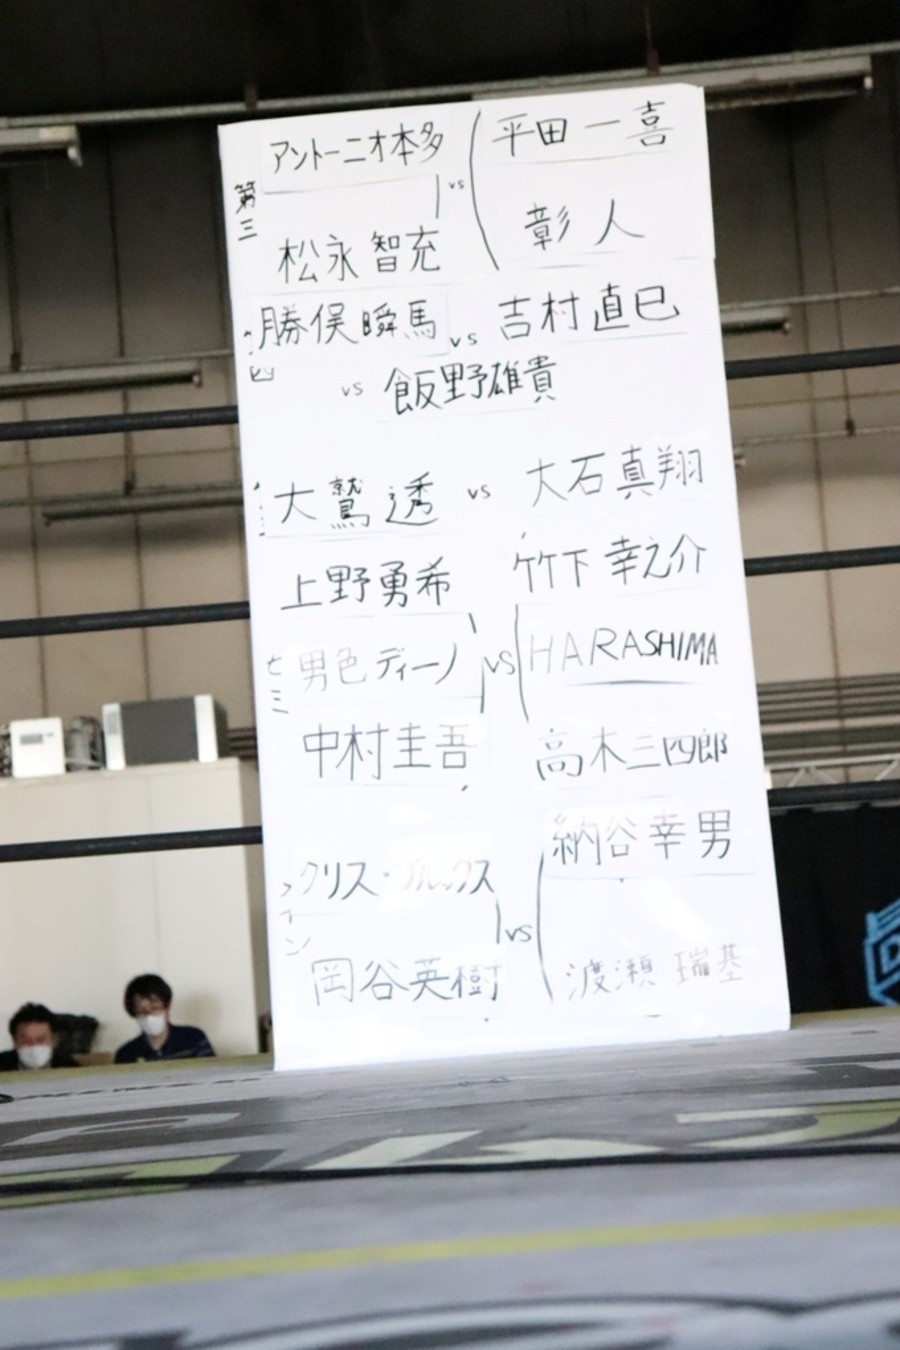 第三
アントーニオ本多 vs 平田一喜
松永智充 彰人
四
勝俣瞬馬 vs 吉村直巳
vs 飯野雄貴
大鷲透 vs 大石真翔
上野勇希 竹下幸之介
セミ
男色ディーノ vs HARASHIMA
中村圭吾 高木三四郎
クリス・ブルックス vs 納谷幸男
岡谷英樹 渡瀬瑞基